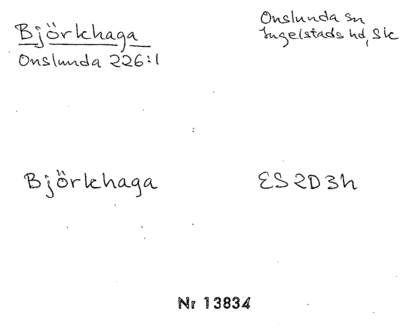 Björkhaga
Onslunda 226:1
Onslunda sn
Ingelstads hd, Sk
Björkhaga
ES2D3h
Nr 13834